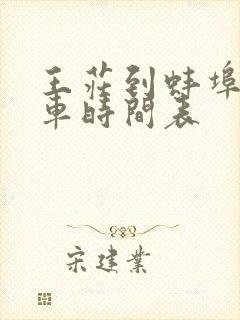 王莊到蚌埠
車時間表
宋建業